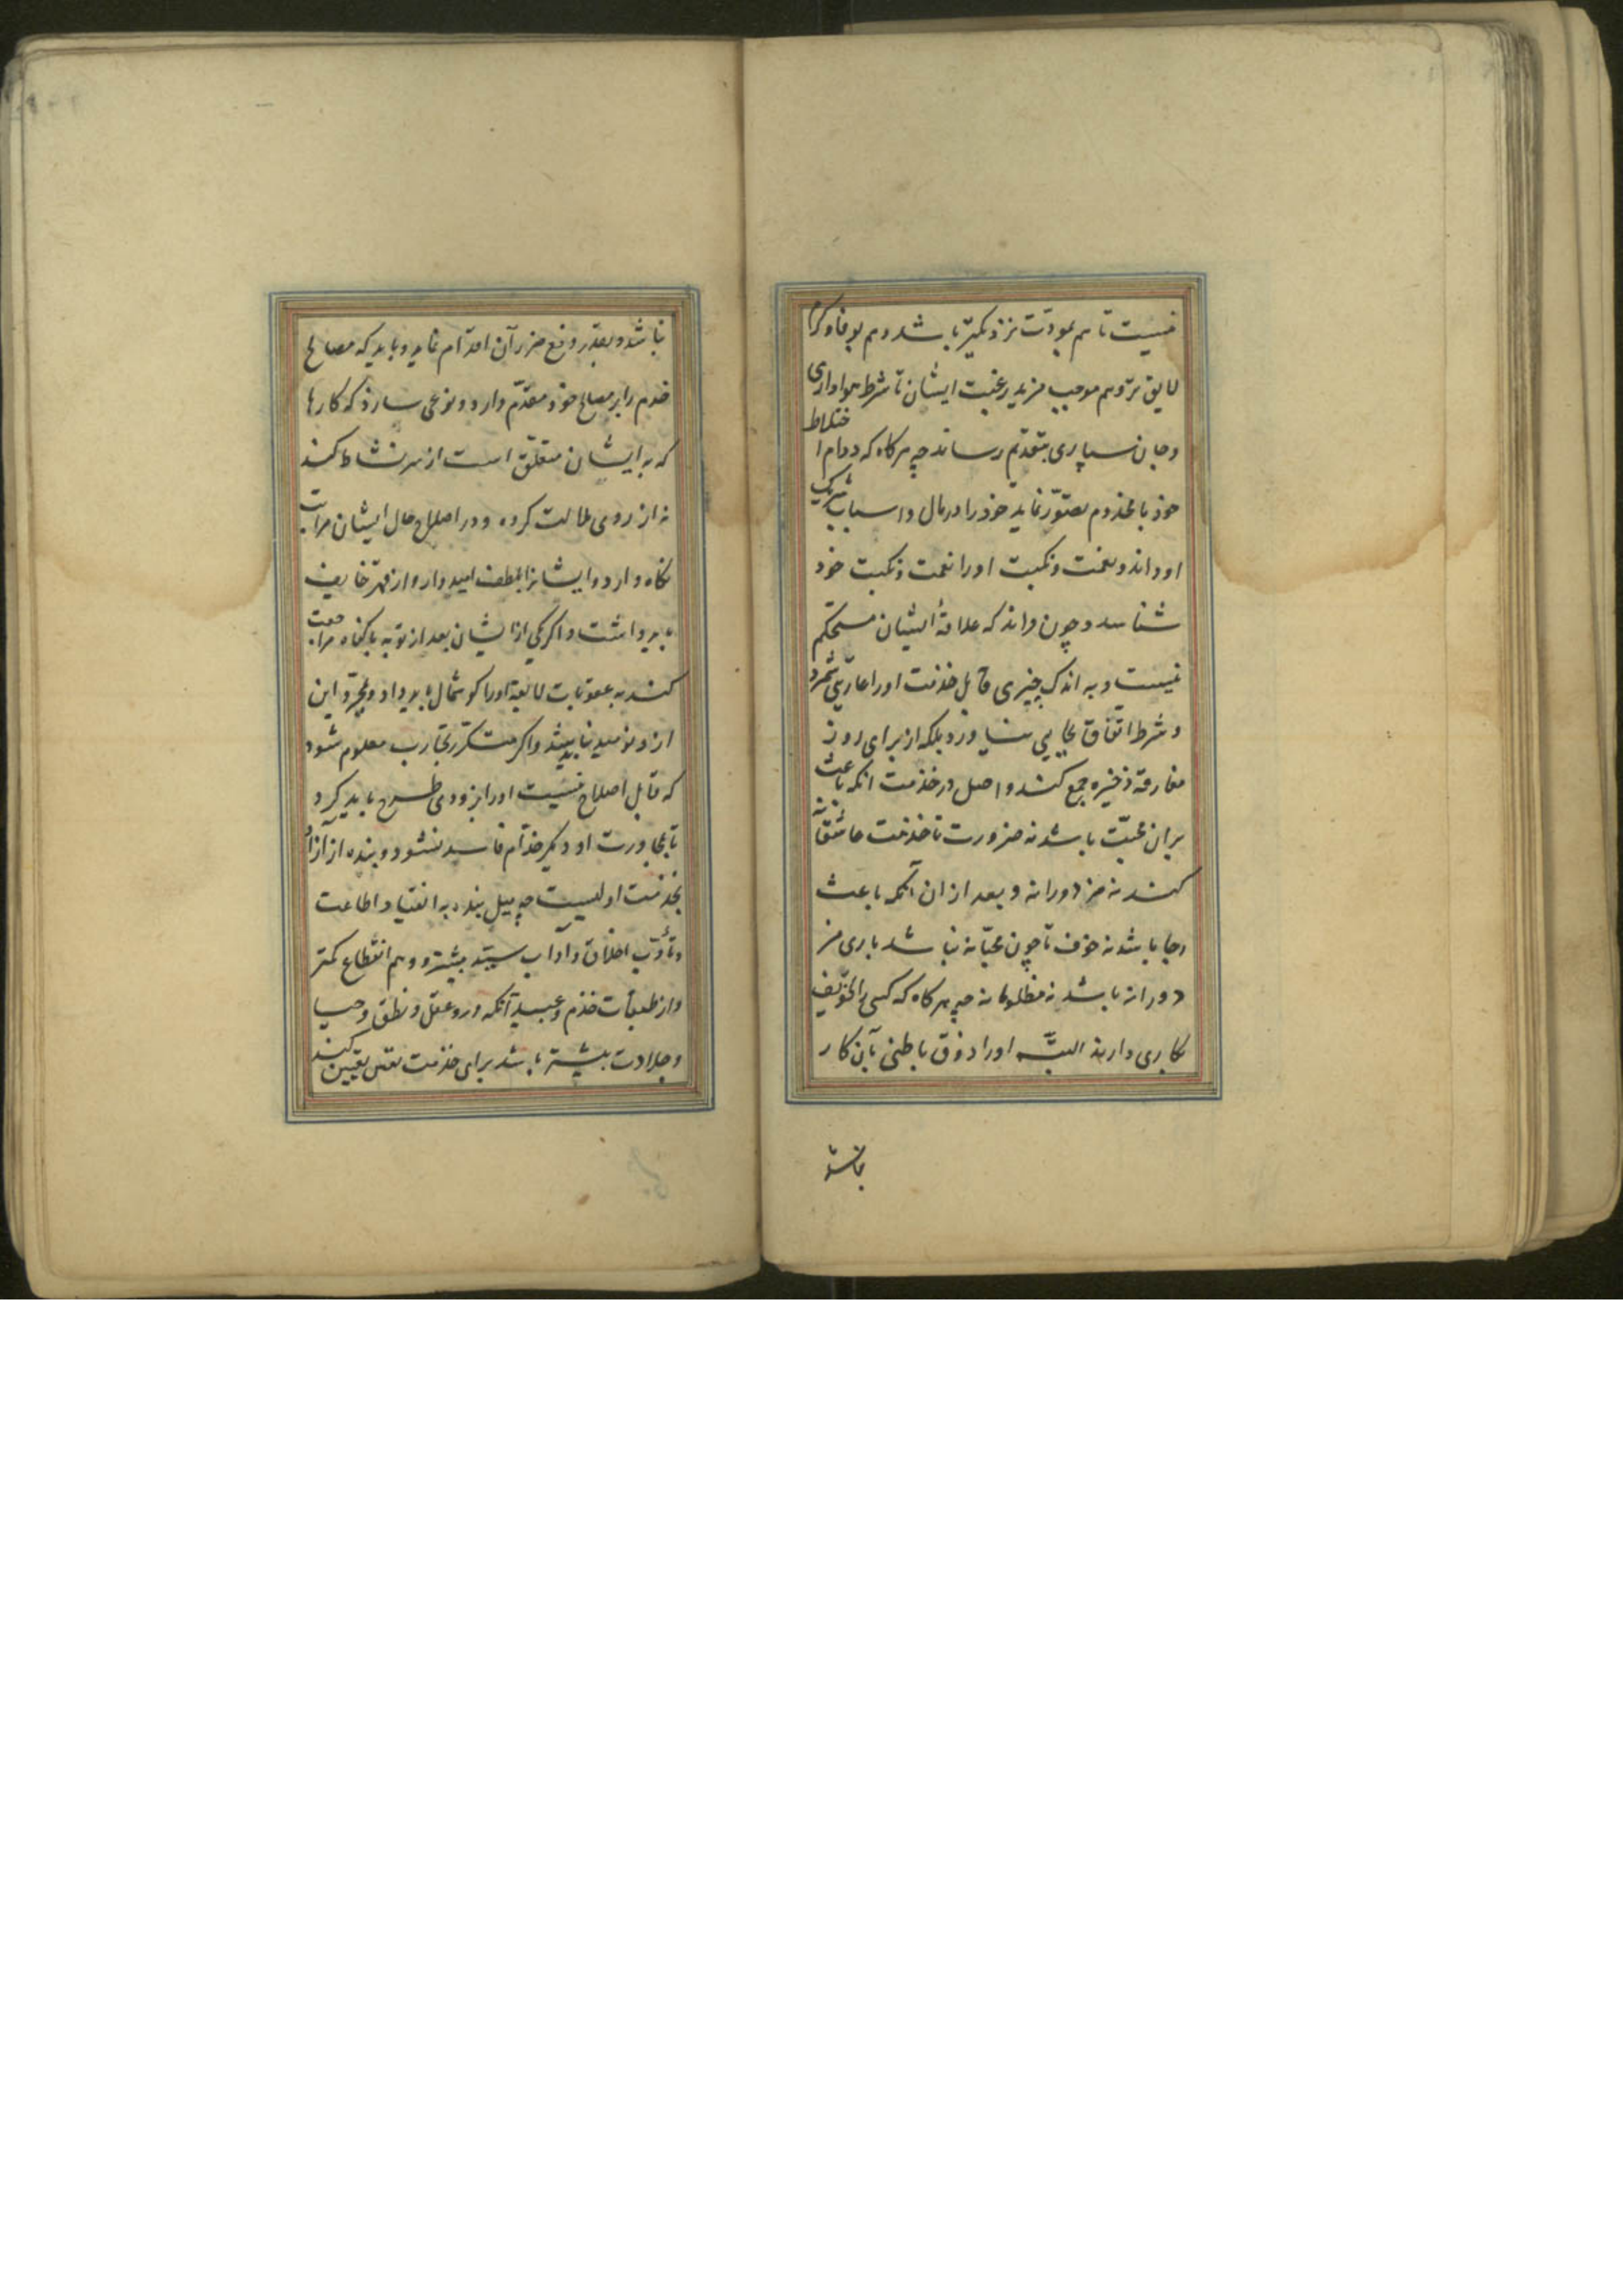 نیست تا هم بمودّت نزدیکتر باشد و هم بوفا و کرم
لایق‌تر و هم موجب مزید رغبت ایشان تا شرط هواداری
و جان سپاری بتقدیم رساند چه هرکاه که دوام اختلاط
خود با مخدوم تصوّر نماید خود را در مال و اسباب شریک
او داند و نعمت و نکبت او را نعمت و نکبت خود
شناسد و چون داند که علاقهٔ ایشان مستحکم
نیست و به اندک چیزی خدمت او را عاریتی شمرد
و شرط اتفاق بجای نیاورد بلکه از برای روز
مفارقة ذخیره جمع کند و اصل در خدمت انکه باعث
بران محبّت باشد نه ضرورت تا خدمت عاشقانه
کند نه مزدورانه و بعد از ان آنکه باعث
رجا باشد نه خوف تا چون محبّانه نباشد باری مز
دورانه باشد نه مظلومانه چه هرکاه که کسی را بتخویف
بکاری دارند البتّه او را ذوق باطنی بآن کار
نباشد
نباشد و بقدر دفع ضرر آن اقدام نماید و باید که مصالح
خدم را بر مصالح خود مقدّم دارد و نوعی سازد که کارها
که به ایشان متعلّق است از سر نشاط کنند
نه از روی ملالت کرده و در اصلاح حال ایشان مراتب
نکاه دارد و ایشانرا بلطف امیدوار و از قهر خایف
باید داشت و اکر یکی از ایشان بعد از توبه با کناه مراجعت
کند به عقوبات لایقه او را کوشمال باید داد و بمجرّد این
ازو نومید نباید شد و اکر بتکرّر تجارب معلوم شود
که قابل اصلاح نیست او را بزودی طرح باید کرد
تا بمجاورت او دیکر خدّام فاسد نشود و بنده از آزاد
بخدمت اولیست چه میل بنده به انقیاد و اطاعت
و تأدّب اخلاق و آداب سیّد بیشتر و وهم انقطاع کمتر
و از طبقات خدم و عبید آنکه درو عقل و نطق و حیا
و جلادت بیشتر باشد برای خدمت نفس تعیین کند